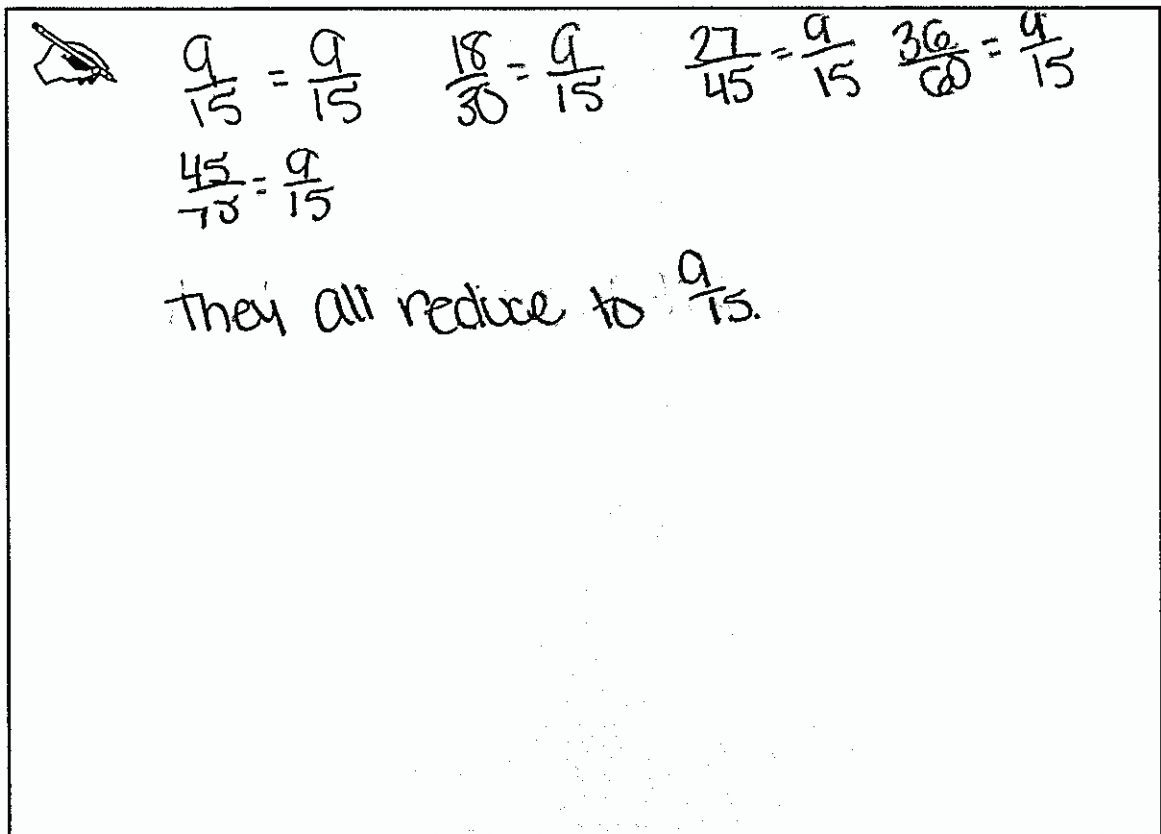 9/15 = 9/15 18/30 = 9/15 27/45 = 9/15 36/60 = 9/15
45/75 = 9/15
They all reduce to 9/15.